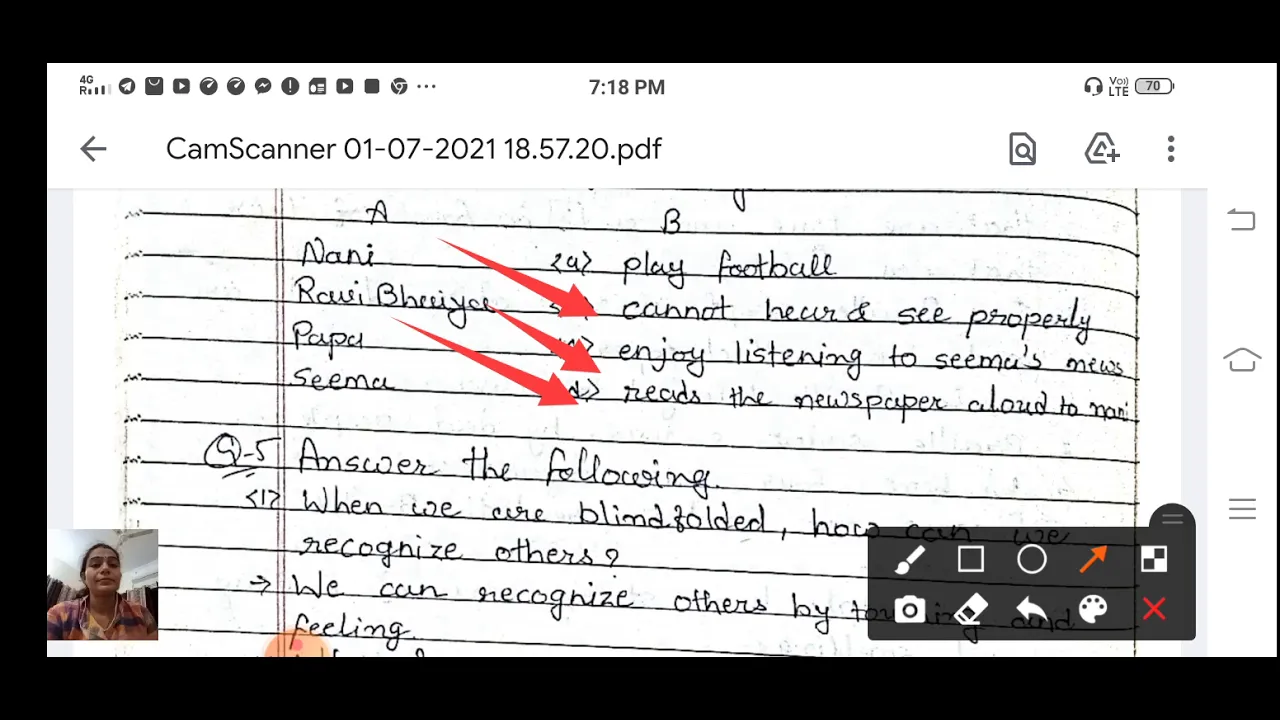 4G
R
7:18 PM
Vo))
LTE
70
CamScanner 01-07-2021 18.57.20.pdf
A
B
Nani
<a> play football
Ravi Bhaiya
cannot hear & see properly
Papa
enjoy listening to seema's news
Seema
d> reads the newspaper aloud to nani
Q-5 Answer the following.
<1> When we are blindfolded, how can we
recognize others?
→ We can recognize others by touching and
feeling.